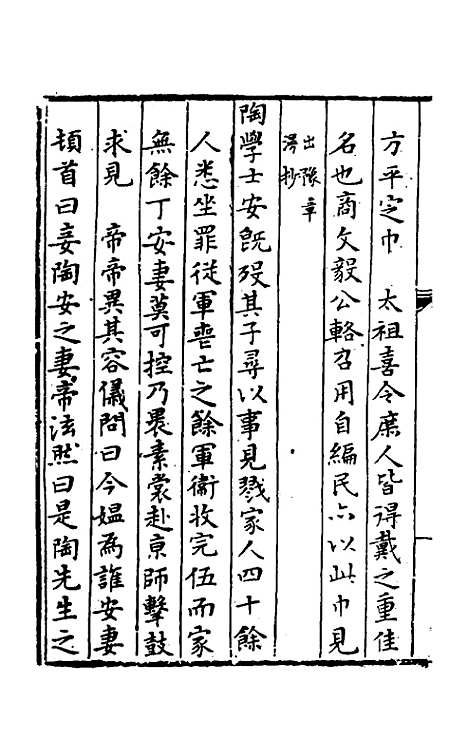 方平定巾　太祖喜令庶人皆得戴之重佳
名也商文毅公輅召用自編民亦以此巾見
出豫章
漫抄
陶學士安既歿其子尋以事見戮家人四十餘
人悉坐罪從軍喪亡之餘軍衛收完伍而家
無餘丁安妻莫可控乃褁素裳赴京師擊鼓
求見　帝帝異其容儀問曰今媪爲誰安妻
頓首曰妾陶安之妻帝泫然曰是陶先生之